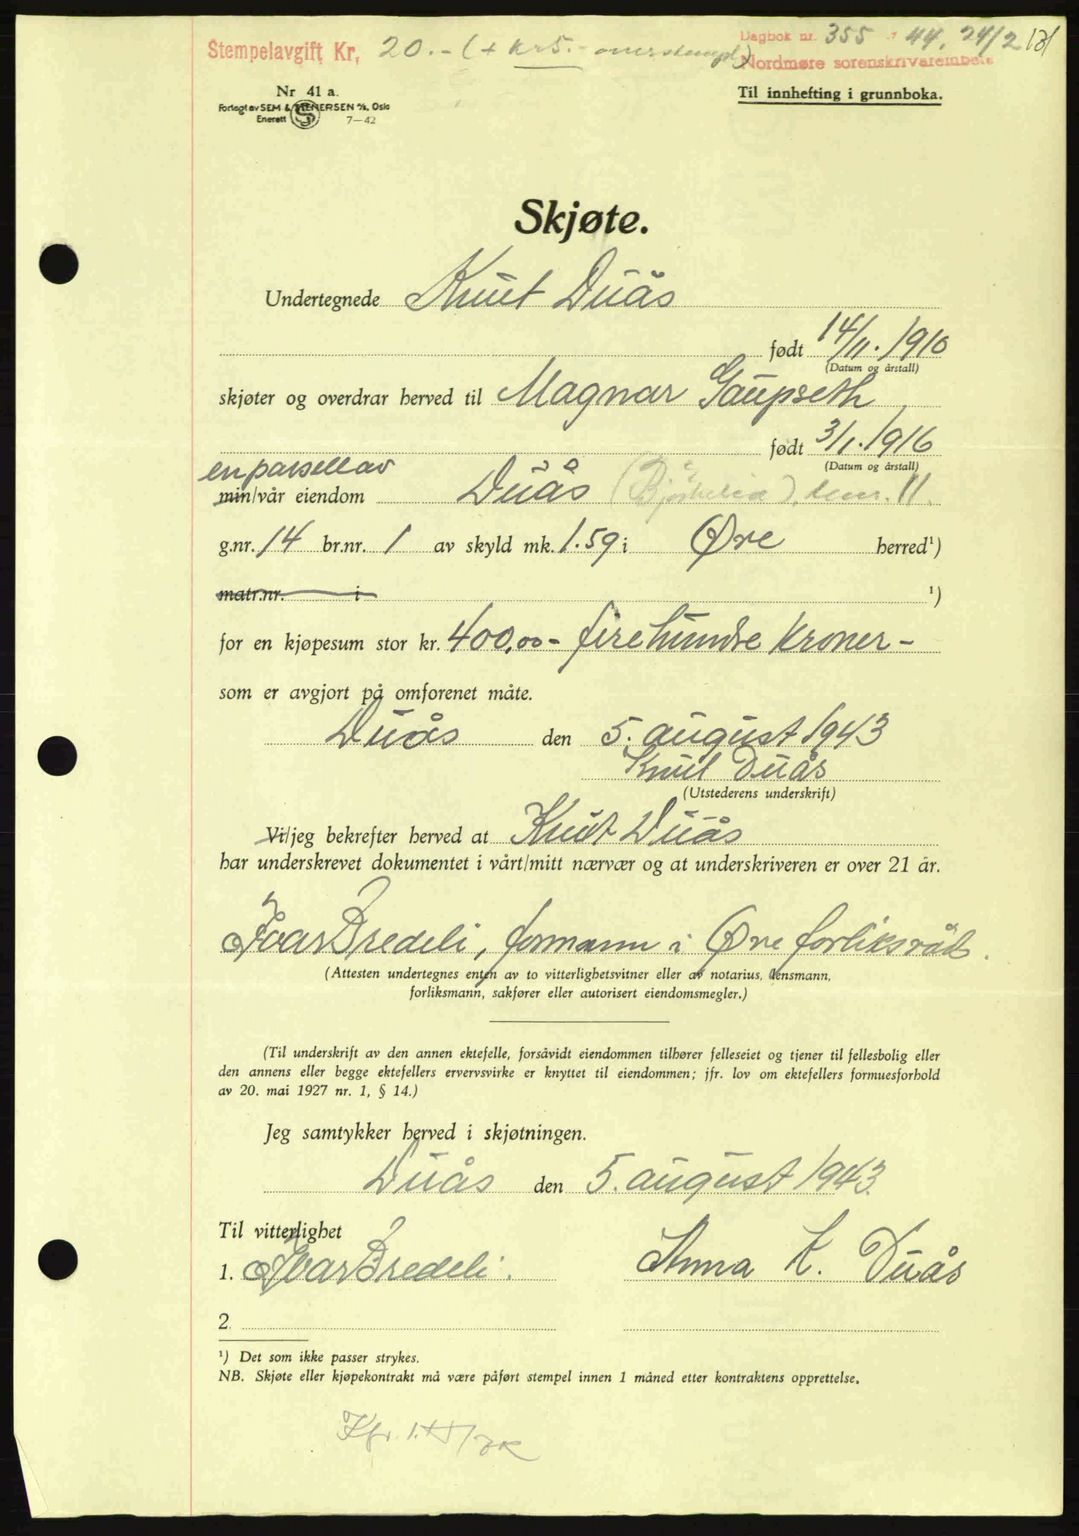 Stempelavgift Kr. 20.- (+ kr 5.- overstempl)
Dagbok nr. 355 44, 24/2 121
Nordmøre sorenskriverembete
Nr 41 a.
Forlagt av SEM & STENERSEN A/S, Oslo
Enerett 7—42
Til innhefting i grunnboka.
Skjøte.
Undertegnede Knut Duås
født 14/11.1910
(Datum og årstall)
skjøter og overdrar herved til Magnar Gaupseth
født 3/1.1916
(Datum og årstall)
en parsell av
min/vår eiendom Duås (Bjørkelia), bnr. 11.
g.nr. 14 br.nr. 1 av skyld mk. 1.59 i Øre herred¹)
matr.nr. i ¹)
for en kjøpesum stor kr. 400,00 - firehundre kroner -
som er avgjort på omforenet måte.
Duås den 5. august 1943
Knut Duås
(Utstederens underskrift)
Vi/jeg bekrefter herved at Knut Duås
har underskrevet dokumentet i vårt/mitt nærvær og at underskriveren er over 21 år.
Ivar Bredeli, formann i Øre forliksråd.
(Attesten undertegnes enten av to vitterlighetsvitner eller av notarius, lensmann,
forliksmann, sakfører eller autorisert eiendomsmegler.)
(Til underskrift av den annen ektefelle, forsåvidt eiendommen tilhører felleseiet og tjener til fellesbolig eller
den annens eller begge ektefellers ervervsvirke er knyttet til eiendommen; jfr. lov om ektefellers formuesforhold
av 20. mai 1927 nr. 1, § 14.)
Jeg samtykker herved i skjøtningen.
Duås den 5. august 1943.
Til vitterlighet
1. Ivar Bredeli. Anna K. Duås
2.
¹) Det som ikke passer strykes.
NB. Skjøte eller kjøpekontrakt må være påført stempel innen 1 måned etter kontraktens opprettelse.